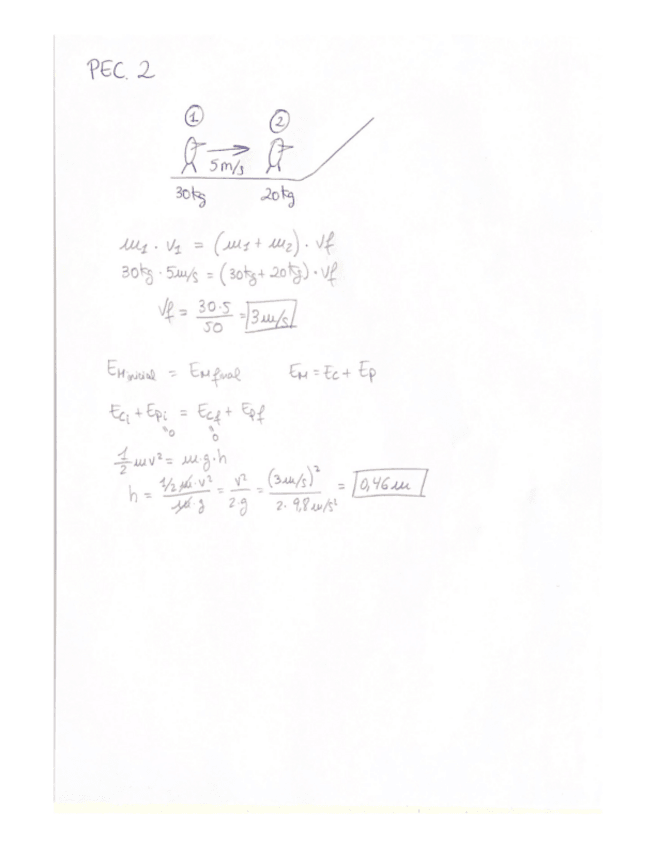 PEC. 2
① ②
5m/s
30kg 20kg
m₁ · v₁ = (m₁ + m₂) · vf
30kg · 5m/s = (30kg + 20kg) · vf
vf = 30·5 / 50 = 3m/s
EM inicial = EM final EM = Ec + Ep
Eci + Epi = Ecf + Epf
=0 =0
1/2 mv² = m·g·h
h = 1/2 m·v² / m·g = v² / 2·g = (3m/s)² / 2·9,8m/s² = 0,46m